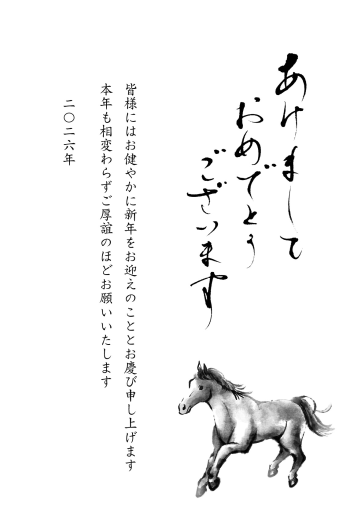 あけまして
おめでとう
ございます
皆様にはお健やかに新年をお迎えのこととお慶び申し上げます
本年も相変わらずご厚誼のほどお願いいたします
二〇二六年